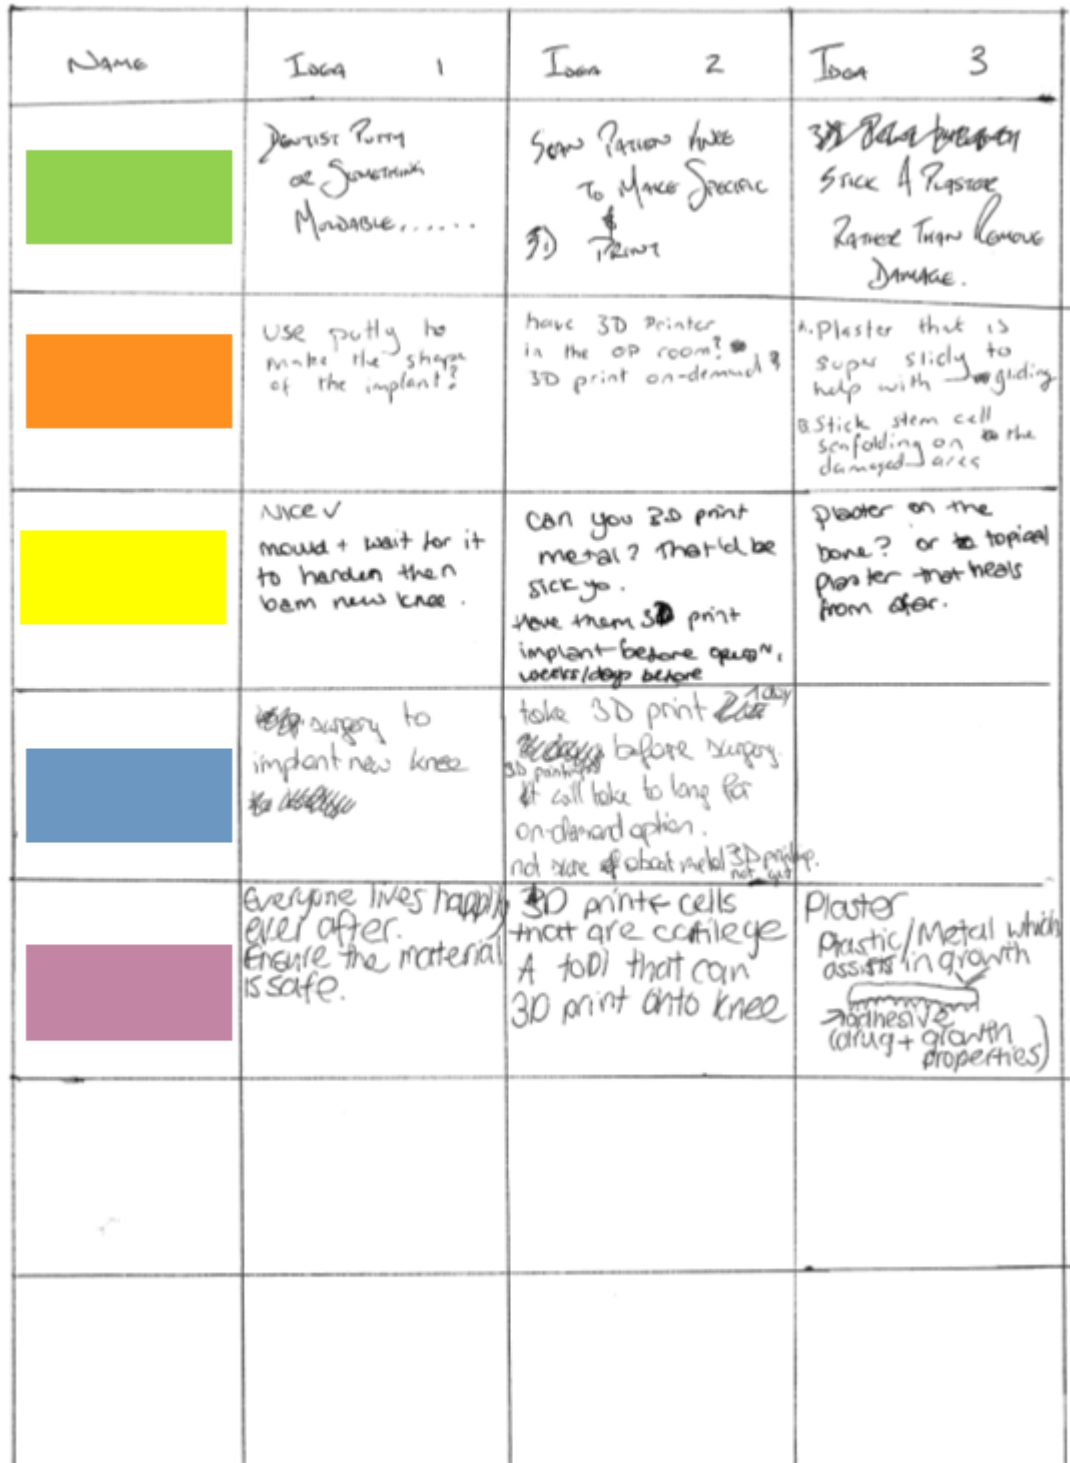 NAME
IDEA 1
IDEA 2
IDEA 3
DENTIST PUTTY
OR SOMETHING
MOLDABLE......
SCAN PATION KNEE
TO MAKE SPECIFIC
&
3D PRINT
STICK A PLASTER
RATHER THAN REMOVE
DAMAGE.
use putty to
make the shape
of the implant?
have 3D Printer
in the OP room?
3D print on-demand?
A. Plaster that is
super slidy to
help with gliding
B. Stick stem cell
scafolding on the
damaged area
NICE ✓
mould + wait for it
to harden then
bam new knee.
can you 3D print
metal? That'd be
sick yo.
Have them 3D print
implant before
weeks/days before
plaster on the
bone? or topical
plaster that heals
from afar.
surgery to
implant new knee
take 3D print 1 day
before surgery.
3D printing
it will take to long for
on-demand option.
not sure about metal 3D printing.
not yet
Everyone lives happily
ever after.
Ensure the material
is safe.
3D print cells
that are catilege
A tool that can
3D print onto knee
Plaster
Plastic/Metal which
assists in growth
adhesive
(drug + growth
properties)